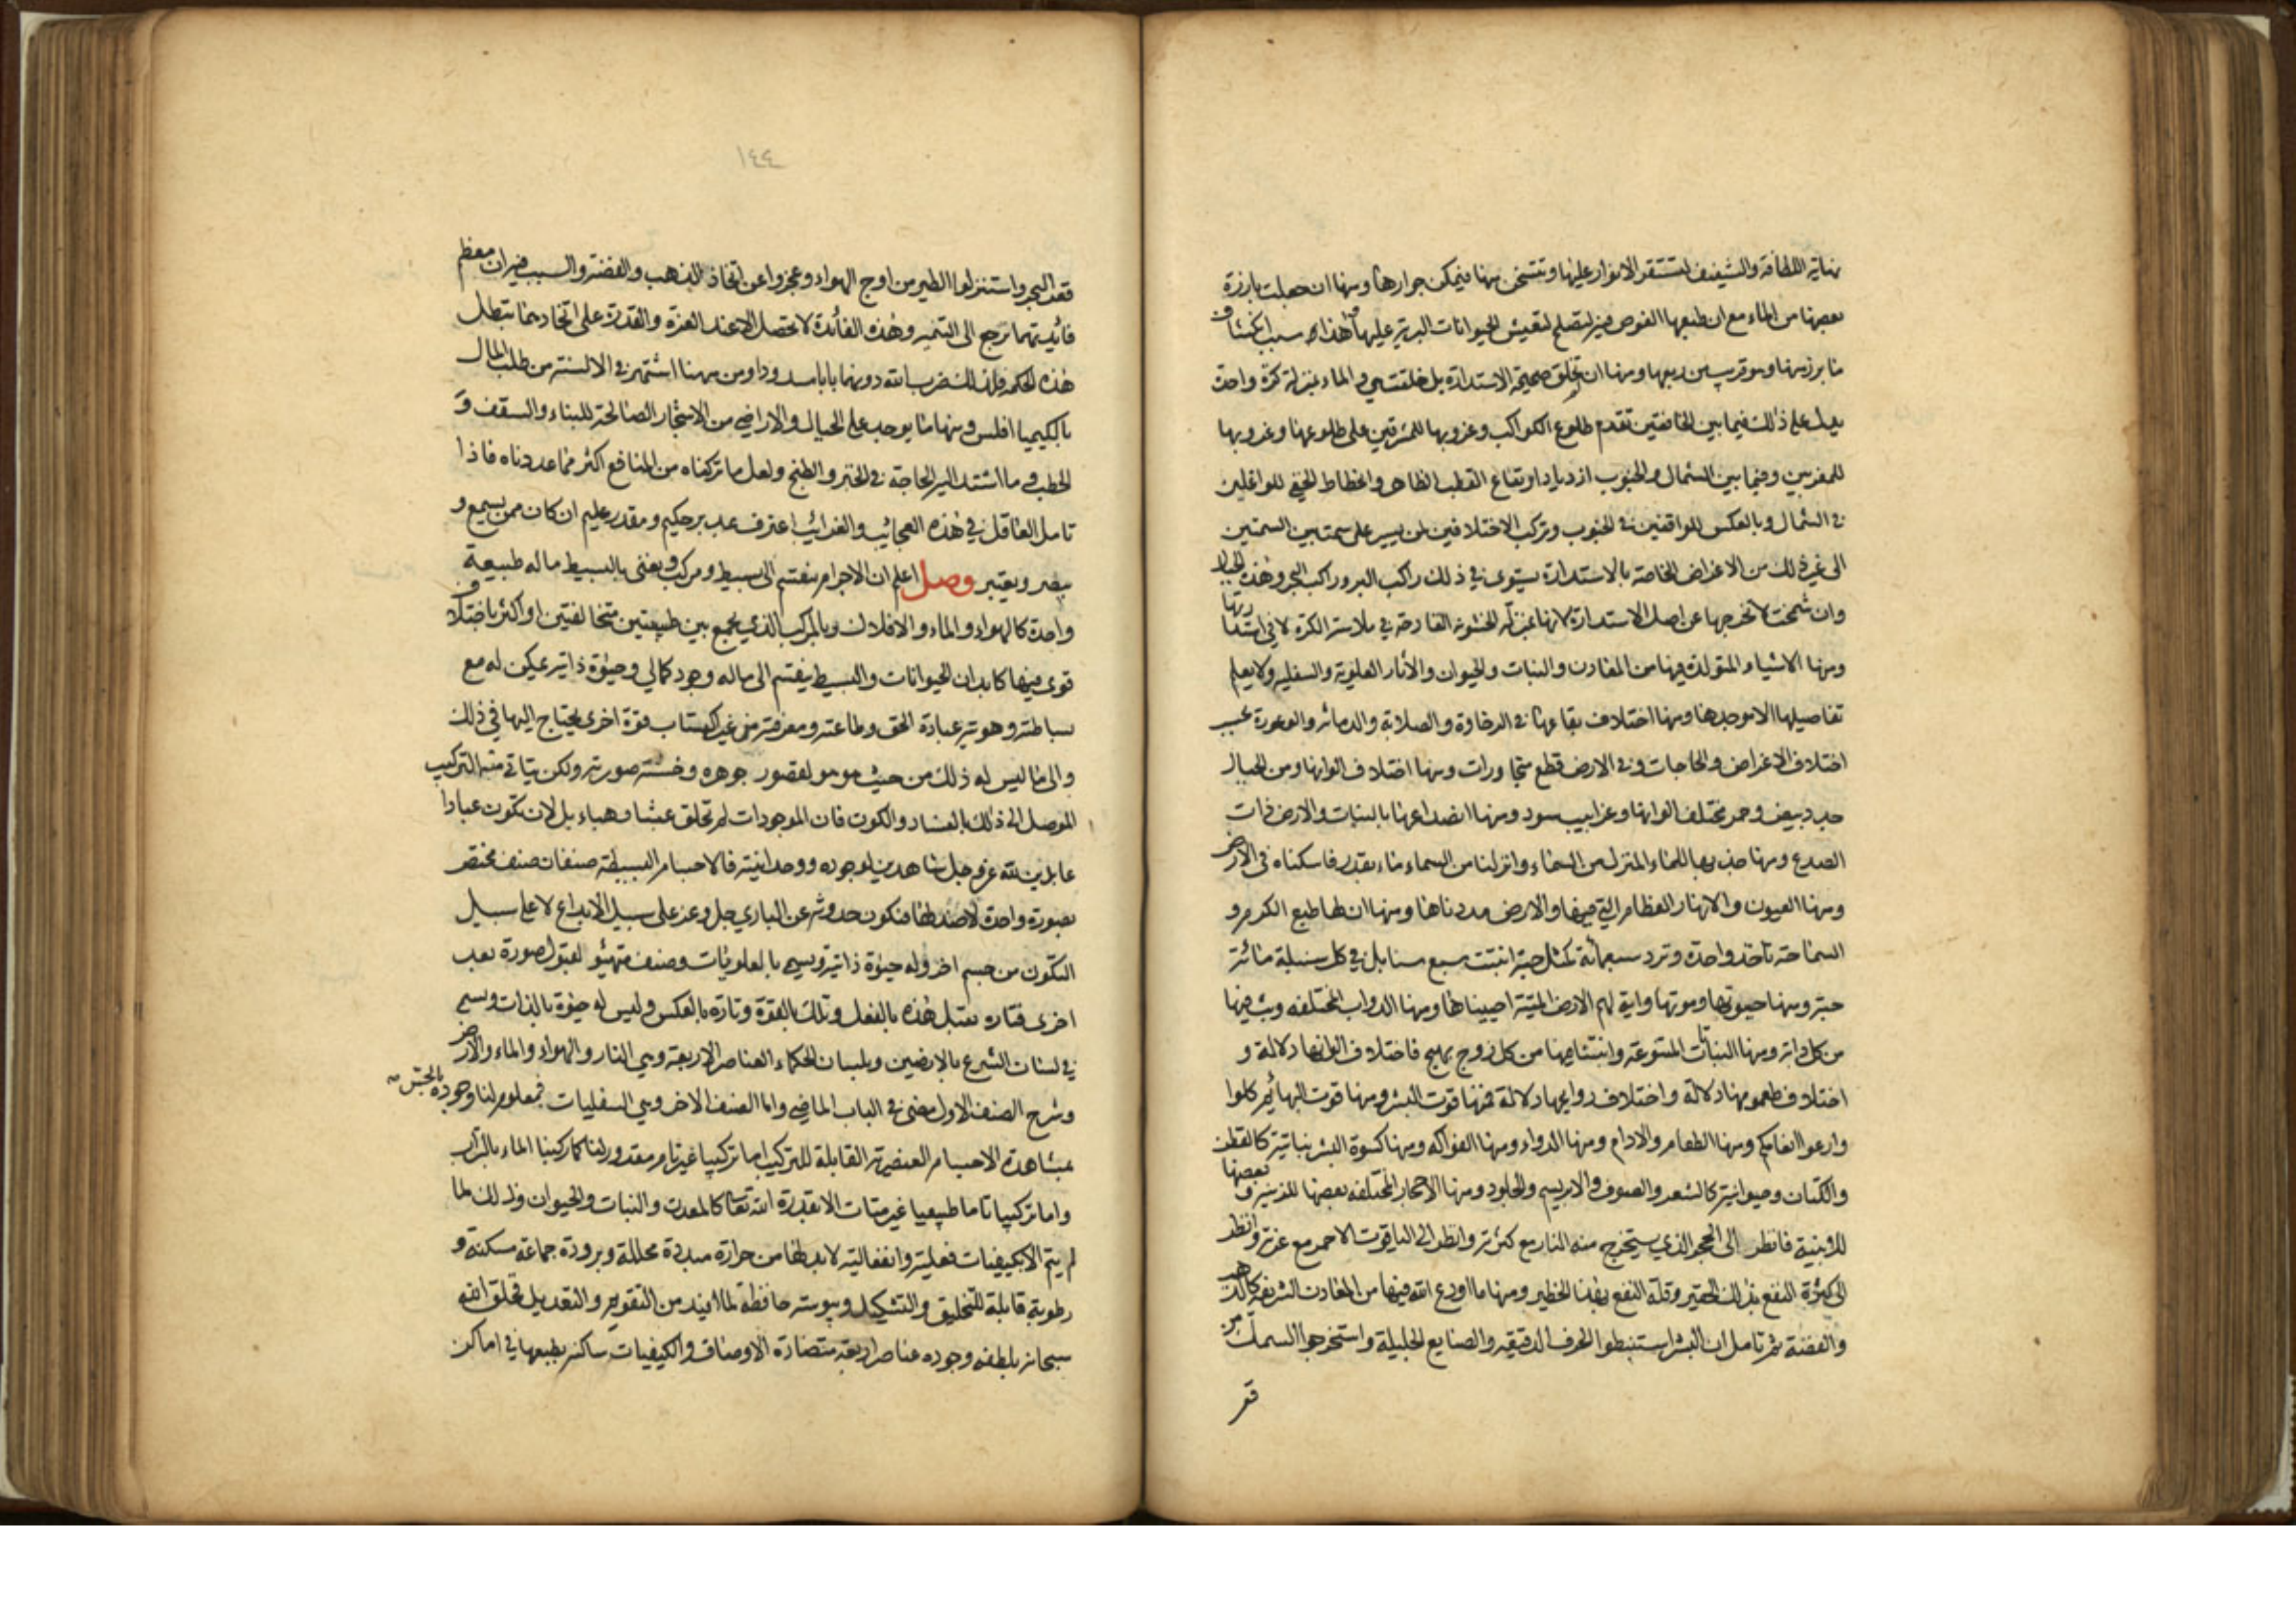 نهاية اللطافة والشفيف لتستقر الانوار عليها وتتسخن منها فيمكن جوارها ومنها ان جعلت بارزة
بعضها من الماء مع ان طبعها الغوص فيه لتصلح لتعيش الحيوانات البرية عليها فهذا هو سبب انكشاف
ما برز منها وهو قريب من ربعها ومنها ان لم تخلق صحيحة الاستدارة بل خلقت هي والماء بمنزلة كرة واحدة
يدل على ذلك فيما بين الخافقين تقدم طلوع الكواكب وغروبها للمشرقين على طلوعها وغروبها
للمغربين وفيما بين الشمال والجنوب ازدياد ارتفاع القطب الظاهر وانحطاط الخفي للواغلين
في الشمال وبالعكس للواقفين في الجنوب وتركب الاختلافين لمن يسير على سمت بين السمتين
الى غير ذلك من الاعراض الخاصة بالاستدارة يستوي في ذلك راكب البر وراكب البحر وهذه الجبال
وان شمخت لا تخرجها عن اصل الاستدارة لانها بمنزلة الخشونة القادحة في ملاسة الكرة لا في استدارتها
ومنها الاشياء المتولدة فيها من المعادن والنبات والحيوان والآثار العلوية والسفلية ولا يعلم
تفاصيلها الا موجدها ومنها اختلاف بقاعها في الرخاوة والصلابة والدماثة والوعورة بحسب
اختلاف الاغراض والحاجات وفي الارض قطع متجاورات ومنها اختلاف الوانها ومن الجبال
جدد بيض وحمر مختلف الوانها وغرابيب سود ومنها انصداعها بالنبات والارض ذات
الصدع ومنها جذبها للماء المنزل من السماء وانزلنا من السماء ماء بقدر فاسكناه في الارض
ومنها العيون والانهار العظام التي فيها والارض مددناها ومنها ان لها طبع الكرم و
السماحة تاخذ واحدة وترد سبعمائة كمثل حبة انبتت سبع سنابل في كل سنبلة مائة
حبة ومنها حيوتها وموتها واية لهم الارض الميتة احييناها ومنها الدواب المختلفة وبث فيها
من كل دابة ومنها النباتات المتنوعة وانبتنا فيها من كل زوج بهيج فاختلاف الوانها دلالة و
اختلاف طعومها دلالة واختلاف روايحها دلالة فمنها قوت البشر ومنها قوت البهائم كلوا
وارعوا انعامكم ومنها الطعام والادام ومنها الدواء ومنها الفواكه ومنها كسوة البشر نباتية كالقطن
والكتان وحيوانية كالشعر والصوف والابريسم والجلود ومنها الاحجار المختلفة بعضها للزينة وبعضها
للابنية فانظر الى الحجر الذي يستخرج منه النار مع كثرته وانظر الى الياقوت الاحمر مع عزته وانظر
الى كثرة النفع بذلك الحقير وقلة النفع بهذا الخطير ومنها ما اودع الله فيها من المعادن الشريفة كالذهب
والفضة ثم تامل ان البشر استنبطوا الحرف الدقيقة والصنايع الجليلة واستخرجوا السمك من
قعر
١٤٤
قعر البحر واستنزلوا الطير من اوج الهواء وعجزوا عن اتخاذ الذهب والفضة والسبب فيه ان معظم
فائدتهما ترجع الى الثمنية وهذه الفائدة لا تحصل الا عند العزة والقدرة على اتخاذهما تبطل
هذه الحكمة فلذلك ضرب الله دونهما بابا مسدودا ومن ههنا اشتهر في الالسنة من طلب المال
بالكيميا افلس ومنها ما يوجد على الجبال والاراضي من الاشجار الصالحة للبناء والسقف و
الحطب وما اشتد اليه الحاجة في الخبز والطبخ ولعل ما تركناه من المنافع اكثر مما عددناه فاذا
تامل العاقل في هذه العجايب والغرائب اعترف بمدبر حكيم ومقدر عليم ان كان ممن يسمع و
يبصر ويعتبر وصل اعلم ان الاجرام ينقسم الى بسيط ومركب ويعنى بالبسيط ما له طبيعة
واحدة كالهواء والماء والافلاك وبالمركب الذي يجمع بين طبيعتين متخالفتين او اكثر باختلاف
قوى فيها كابدان الحيوانات والبسيط ينقسم الى ما له وجود كمالي وحيوة ذاتية يمكن له مع
بساطته وهويته عبادة الحق وطاعته ومعرفته من غير اكتساب قوة اخرى يحتاج اليها في ذلك
والى ما ليس له ذلك من حيث هو هو لقصور جوهره وخسة صورته ولكن يتاتى منه التركيب
الموصل الى ذلك بالفساد والكون فان الموجودات لم تخلق عبثا وهباء بل لان تكون عبادا
عابدين لله عز وجل شاهدين لوجوده ووحدانيته فالاجسام البسيطة صنفان صنف مختص
بصورة واحدة لا ضد لها فتكون حدوثه عن الباري جل وعز على سبيل الابداع لا على سبيل
التكون من جسم اخر وله حيوة ذاتية ويسمى بالعلويات وصنف متهيؤ لقبول صورة بعد
اخرى فتارة يقبل هذه بالفعل وتلك بالقوة وتارة بالعكس وليس له حيوة بالذات ويسمى
في لسان الشرع بالارضين وبلسان الحكماء العناصر الاربعة وهي النار والهواء والماء والارض
وشرح الصنف الاول مضى في الباب الماضي واما الصنف الاخر وهي السفليات فمعلوم لنا وجوده بالحس
بمشاهدة الاجسام العنصرية القابلة للتركيب اما تركيبا غير تام مقدور لنا كما ركبنا الماء بالتراب
واما تركيبا تاما طبيعيا غير متات الا بقدرة الله تعالى كالمعدن والنبات والحيوان وذلك لما
لم يتم الا بكيفيات فعلية وانفعالية لا بد لها من حرارة مبددة محللة وبرودة جماعة مسكنة و
رطوبة قابلة للتخليق والتشكيل ويبوسة حافظة لما افيد من التقويم والتعديل فخلق الله
سبحانه بلطفه وجوده عناصر اربعة متضادة الاوصاف والكيفيات ساكنة بطبعها في اماكن